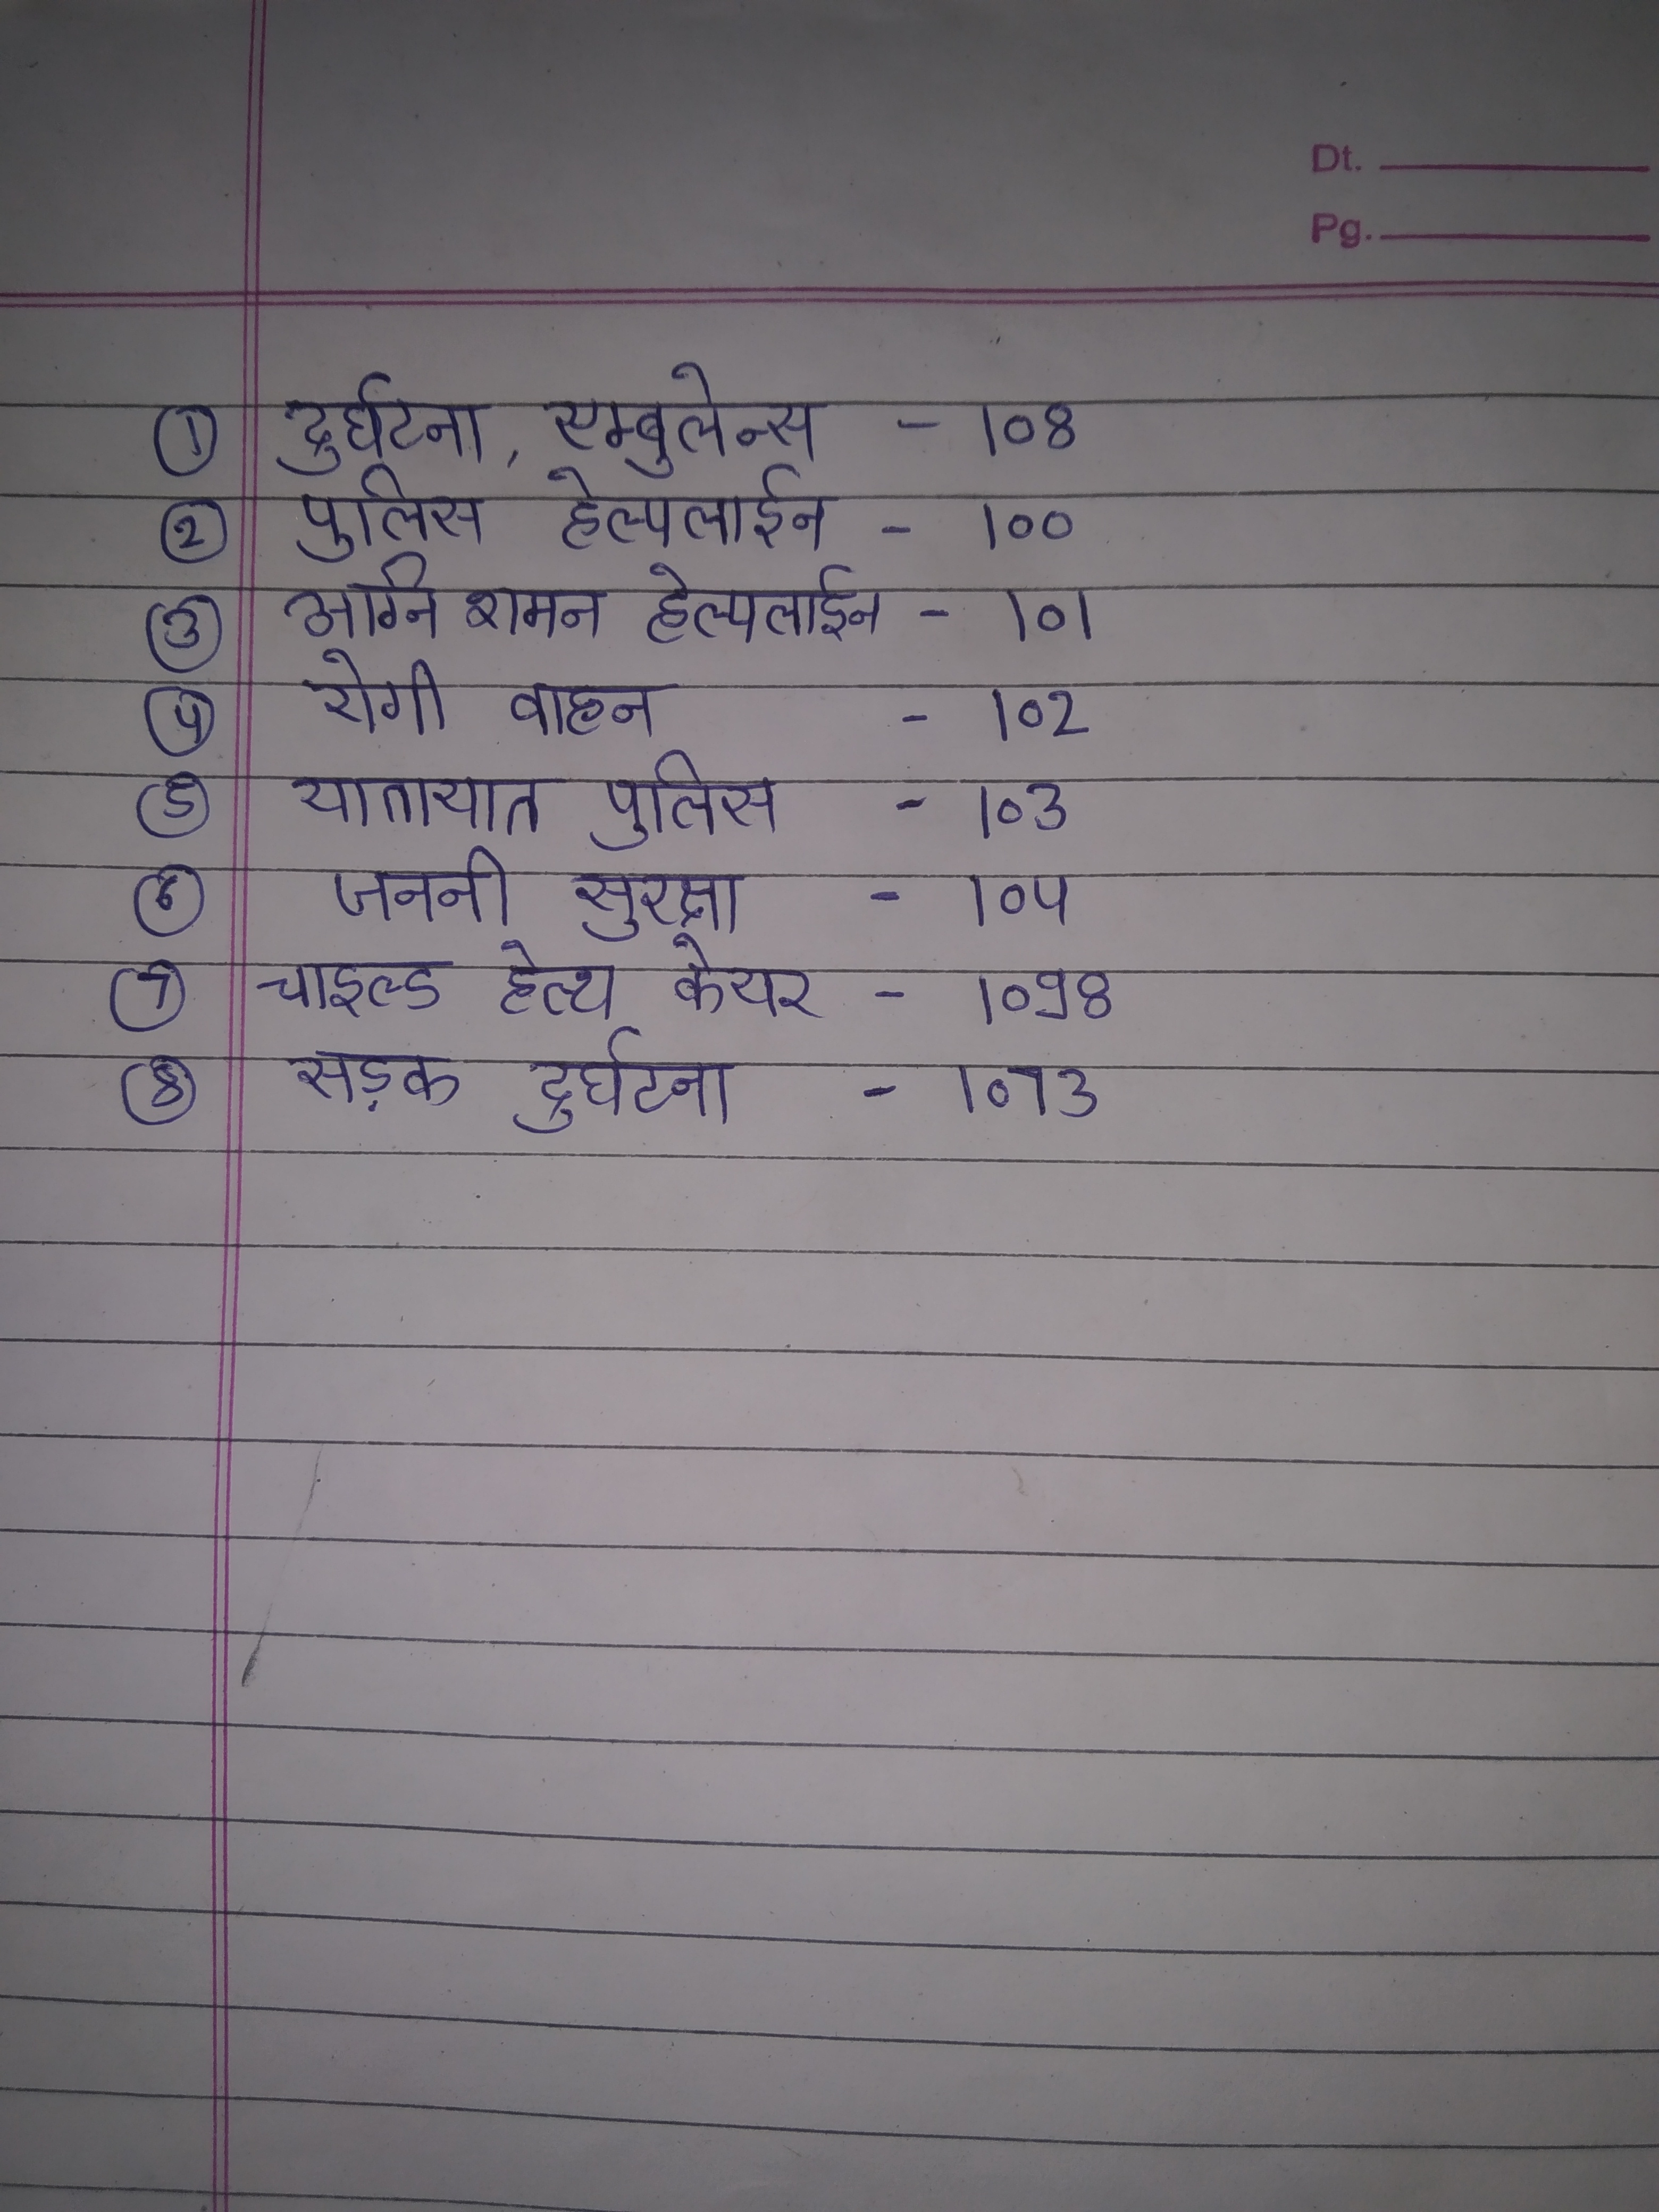 Dt.
Pg.
① दुर्घटना, एम्बुलेन्स - 108
② पुलिस हेल्पलाईन - 100
③ अग्नि शमन हेल्पलाईन - 101
④ रोगी वाहन - 102
⑤ यातायात पुलिस - 103
⑥ जननी सुरक्षा - 104
⑦ चाइल्ड हेल्थ केयर - 1098
⑧ सड़क दुर्घटना - 1073